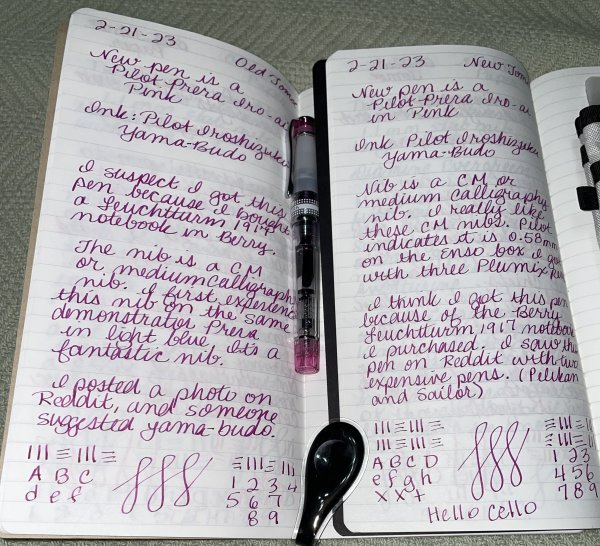 2-21-23
Old
New pen is a
Pilot Prera Iro-
Pink
Ink: Pilot Iroshizuku
Yama-Budo
I suspect I got this
pen because I bought
a Leuchtturm 1917
notebook in Berry.
The nib is a CM
or medium Calligraphy
nib. I first experienc
this nib on the same
demonstrator Prera
in light blue. It's a
fantastic nib.
I posted a photo on
Reddit, and someone
suggested yama-budo.
A B C
d e f
1 2 3 4
5 6 7
8 9
2-21-23
New
New pen is a
Pilot Prera Iro-
in Pink
Ink Pilot Iroshizuku
Yama-Budo
Nib is a CM or
medium calligraphy
nib. I really like
these CM nibs. Pilot
indicates it is 0.58mm
on the Enso box I got
with three Plumix
I think I got this pen
because of the Berry
Leuchtturm 1917 notebook
I purchased. I saw this
pen on Reddit with two
expensive pens. (Pelikan
and Sailor)
A B C D
e f g h
X X +
1 2 3
4 5 6
7 8 9
Hello Cello